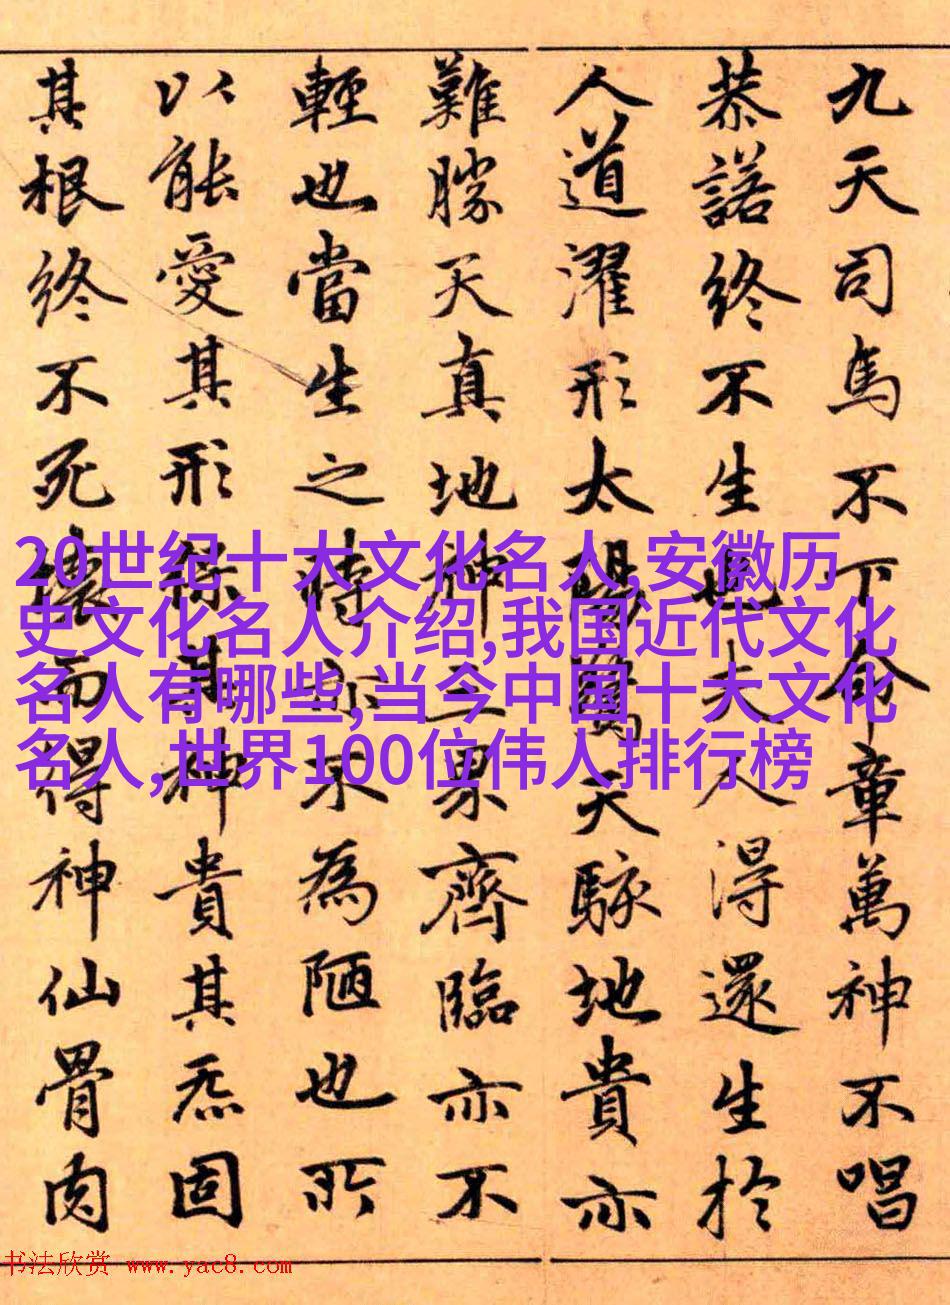 九天司馬不下命章萬神不唱
恭諾終不生也夫人得還生於
人道濯形太陽驚天駭地貴亦
難勝天真地神三界齊臨亦不
輕也當生之時亦不為陋也所
以能愛其形保其神貴其炁固
其根終不死壞而得神仙骨肉
20世纪十大文化名人,安徽历
史文化名人介绍,我国近代文化
名人有哪些,当今中国十大文化
名人,世界100位伟人排行榜
书法欣赏 www.yac8.com